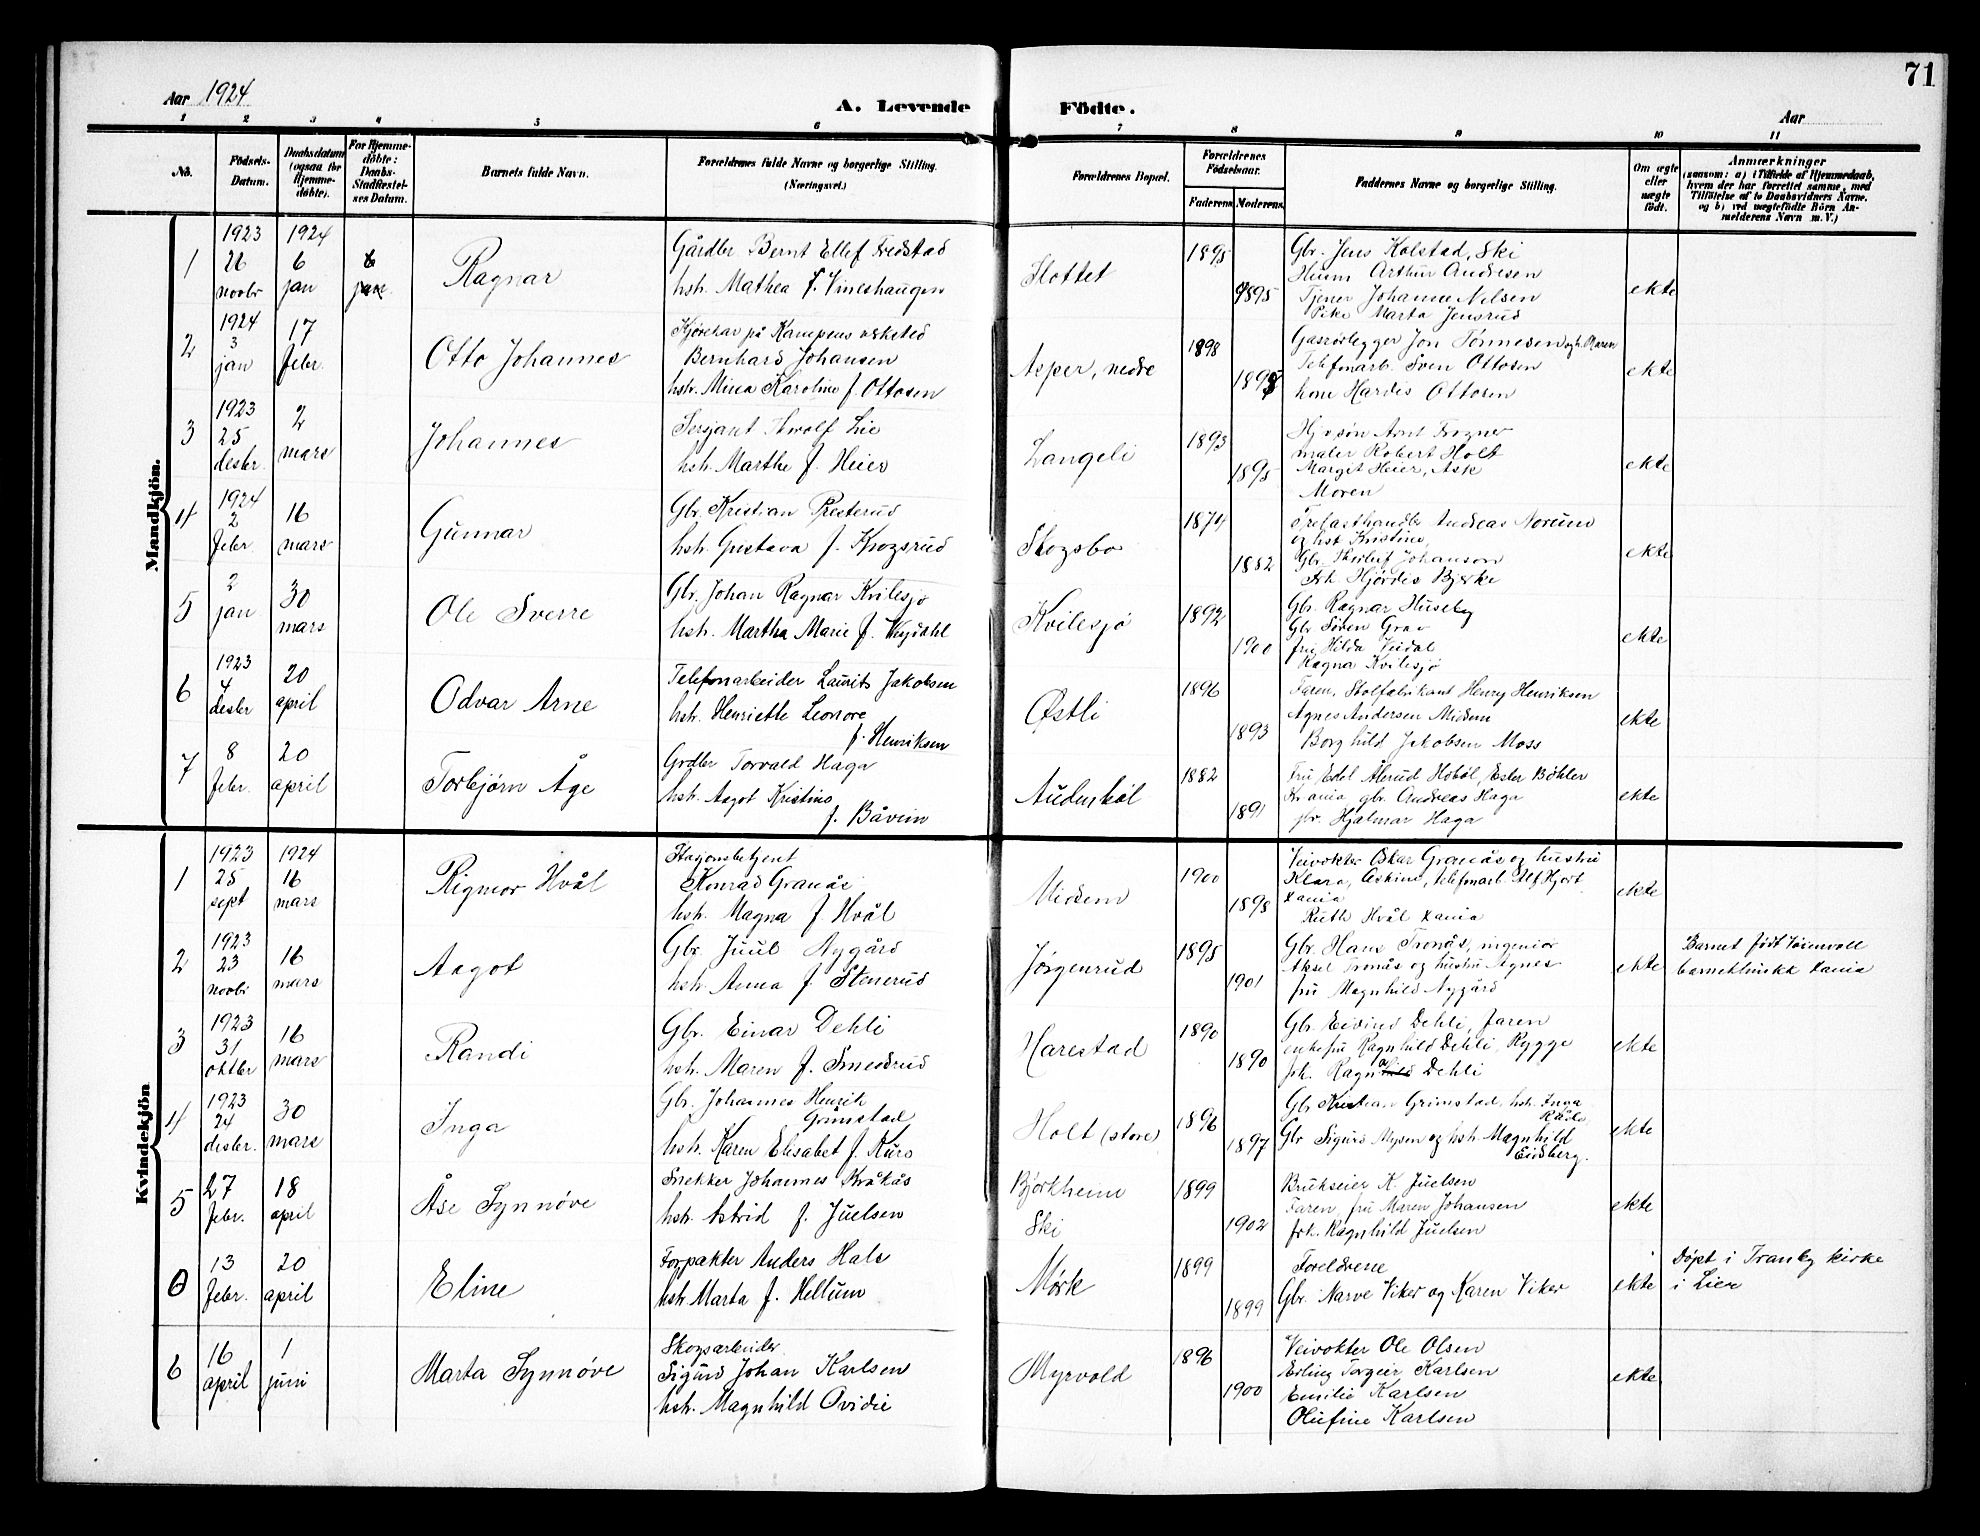 71
Aar 1924
A. Levende Födte.
Aar
1 2 3 4 5 6 7 8 9 10 11
No.
Födsels-Datum.
Daabsdatum (ogsaa for Hjemme-döbte).
For Hjemme-döbte: Daabs-Stadfæstel-ses Datum.
Barnets fulde Navn.
Forældrenes fulde Navne og borgerlige Stilling. (Næringsvei.)
Forældrenes Bopæl.
Forældrenes Födselsaar.
Faderens. Moderens.
Faddernes Navne og borgerlige Stilling.
Om ægte eller uægte födt.
Anmærkninger
(saasom: a) i Tilfælde af Hjemmedaab,
hvem der har forrettet samme, med
Tilföielse af to Daabsvidners Navne.
og b) ved uægtefödte Börn An-
melderens Navn m. V.)
Mandkjön.
1
1923 26 novbr
1924 6 jan
6 jan.
Ragnar
Gårdbr Bernt Ellef Fredstad
hstr. Mathea f. Vineshaugen
Slottet
1895
1895
Gbr. Jens Kolstad, Ski
Arthur Andresen
Tjener Johanne Nilsen
Pike Marta Jensrud
ekte
2
1924 3 jan
17 febr.
Otto Johannes
Kjørekar på Kampens verksted
Bernhard Johansen
hstr. Mina Karoline f. Ottosen
Asper, nedre
1898
1898
Gasrørlegger Jon Tønnesen og h. Maren
Telefonarb. Sven Ottosen
kone Hardis Ottosen
ekte
3
1923 25 desbr.
2 mars
Johannes
Sersjant Lie
hstr. Marthe f. Heier
Langeli
1893
1895
Arnt Frogner
maler Robert Holt
Margit Heier, Ask
Moren
ekte
4
1924 2 febr.
16 mars
Gunnar
Gbr. Kristian Presterud
hstr. Gustava f. Krogsrud
Skogsbo
1874
1882
Trelasthandler Andreas Norum
og hst Kristine,
Gbr. Johansen
frk Hjørdis Bjerke
ekte
5
2 jan
30 mars
Ole Sverre
Gbr. Johan Ragnar Kvilesjø
hstr. Martha Marie f.
Kvilesjø
1892
1900
Gbr. Ragnar Huseby
Gbr Søren Grav
fru Hilda Veidal
Ragna Kvilesjø
ekte
6
1923 4 desbr
20 april
Odvar Arne
Telefonarbeider Laurits Jakobsen
hstr. Henriette Leonore
f. Henriksen
Østli
1896
1893
Faren, Stolfabrikant Henry Henriksen
Agnes Andersen Midsem
Borghild Jakobsen Moss
ekte
7
8 febr.
20 april
Torbjørn Åge
Grdbr Torvald Haga
hstr. Aagot Kristine
f. Båvim
Audenbøl
1882
1891
Fru Edel Ålerud Hobøl, Ester Bøhler
Krania gbr. Andreas Haga
gbr. Hjalmar Haga
ekte
Kvindekjön
1
1923 25 sept
1924 16 mars
Rigmor Hvål
Stasjonsbetjent
Konrad Granås
hstr. Magna f Hvål
Midsem
1900
1898
Veivokter Oskar Granås og hustru
Klara, Askim, telefonarb. Alf Hjort
Xania
Ruth Hvål Xania
ekte
2
1923 23 novbr
16 mars
Aagot
Gbr. Juul Nygård
hstr. Anna f. Stenerud
Jørgenrud
1895
1901
Gbr. Hans Tronås, ingeniør
Aksel Tronås og hustru Agnes
fru Magnhild Nygård
ekte
Barnet født
barneklinikk Xania
3
1923 31 oktbr
16 mars
Randi
Gbr. Einar Dehli
hstr. Maren f. Smedsrud
Harestad
1890
1890
Gbr. Eivind Dehli, faren
enkefru Ragnhild Dehli, Rygge
frk. Ragna Dehli
ekte
4
1923 24 desbr.
30 mars
Inga
Gbr. Johannes Henrik
Grimstad
hstr. Karen Elisabet f. Kuro
Holt (store)
1896
1897
Gbr Kristian Grimstad, hstr. Inga
Råde
Gbr Sigurd Mysen og hstr. Magnhild
Eidsberg.
ekte
5
27 febr.
18 april
Åse Synnøve
Snekker Johannes Kråkås
hstr. Astrid f. Juelsen
Bjørkheim
Ski
1899
1902
Brukseier K. Juelsen
Faren, fru Maren Johansen
frk. Ragnhild Juelsen
ekte
0
13 febr.
20 april
Eline
Forpakter Anders Hals
hstr Marta f. Hellum
Mørk
1899
1899
Foreldrene
Gbr. Narve Viker og Karen Viker
ekte
Døpt i Tranby kirke
i Lier
6
16 april
1 juni
Marta Synnøve
Skogsarbeider
Sigurd Johan Karlsen
hstr. Magnhild Ovidie
Myrvold
1896
1900
Veivokter Ole Olsen
Erling Torgeir Karlsen
Emilie Karlsen
Olufine Karlsen
ekte